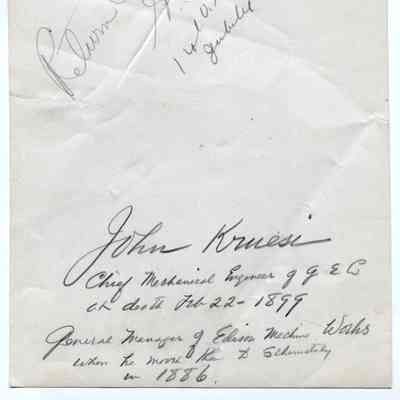 Return
John Kruesi
Chief Mechanical Engineer of G E Co
at death Feb 22 - 1899
General Manager of Edison Machine Works
when he moved to Schenectady
in 1886.